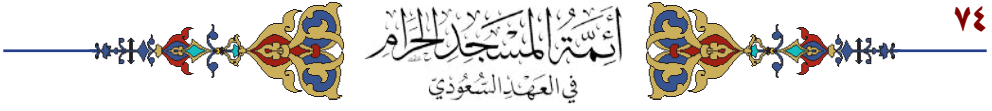 ٧٤
أَئِمَّةُ المَسْجِدِ الحَرَامِ
في العَهْدِ السُّعُودِيِّ